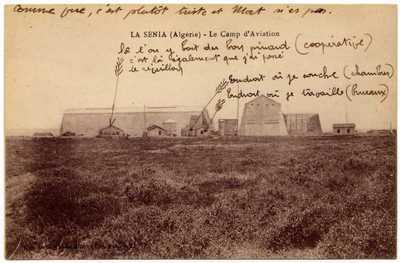 Comme vue, c'est plutôt triste et Mat n'es pas.
LA SENIA (Algérie) - Le Camp d'Aviation
là l'on y boit du bon pinard (coopérative)
c'est là également que j'ai passé
le réveillon
Endroit où je couche (chambre)
Endroit où je travaille (bureau)